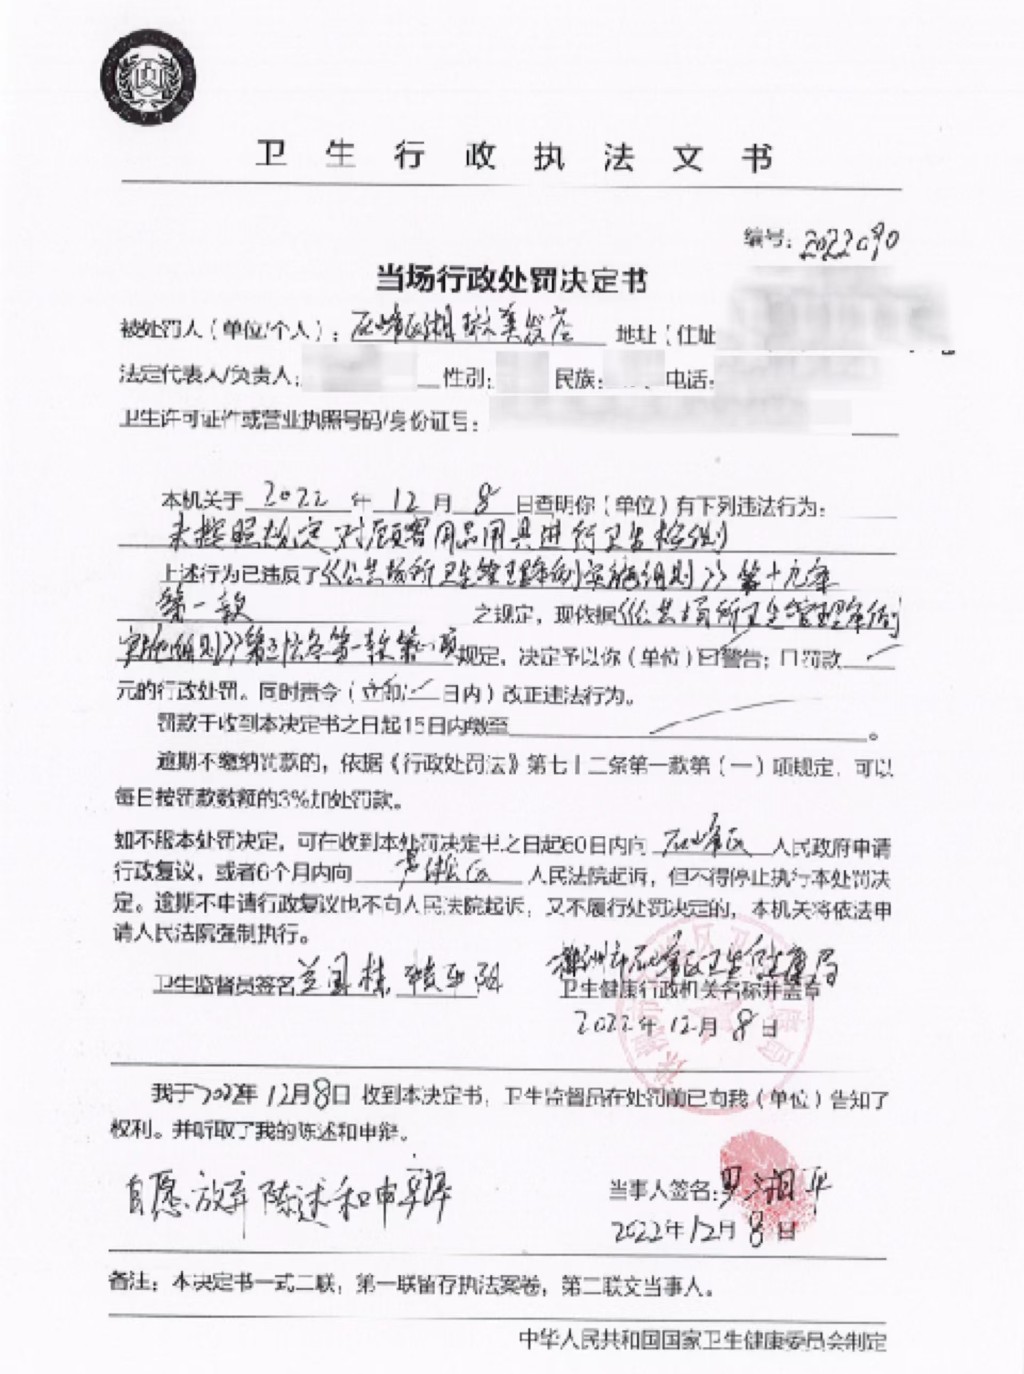 卫生行政执法文书
编号：2022090
当场行政处罚决定书
被处罚人（单位/个人）：石峰区湘 美发店 地址（住址
法定代表人/负责人： 性别： 民族： 电话：
卫生许可证件或营业执照号码/身份证号：
本机关于 2022 年 12 月 8 日查明你（单位）有下列违法行为：
未按照规定对顾客用品用具进行卫生检测
上述行为已违反了《公共场所卫生管理条例实施细则》第十九条
第一款 之规定，现依据《公共场所卫生管理条例
实施细则》第 条第一款第一项规定，决定予以你（单位）☑警告；口罚款
元的行政处罚。同时责令（立即 日内）改正违法行为。
罚款于收到本决定书之日起15日内缴至 。
逾期不缴纳罚款的，依据《行政处罚法》第七十二条第一款第（一）项规定，可以
每日按罚款数额的3%加处罚款。
如不服本处罚决定，可在收到本处罚决定书之日起60日内向 石峰区 人民政府申请
行政复议，或者6个月内向 芦淞区 人民法院起诉，但不得停止执行本处罚决
定。逾期不申请行政复议也不向人民法院起诉，又不履行处罚决定的，本机关将依法申
请人民法院强制执行。
卫生监督员签名 株洲市石峰区卫生健康局
卫生健康行政机关名称并盖章
2022年12月8日
我于2022年12月8日 收到本决定书，卫生监督员在处罚前已向我（单位）告知了
权利。并听取了我的陈述和申辩。
自愿放弃陈述和申辩 当事人签名：罗湘平
2022年12月8日
备注：本决定书一式二联，第一联留存执法案卷，第二联交当事人。
中华人民共和国国家卫生健康委员会制定